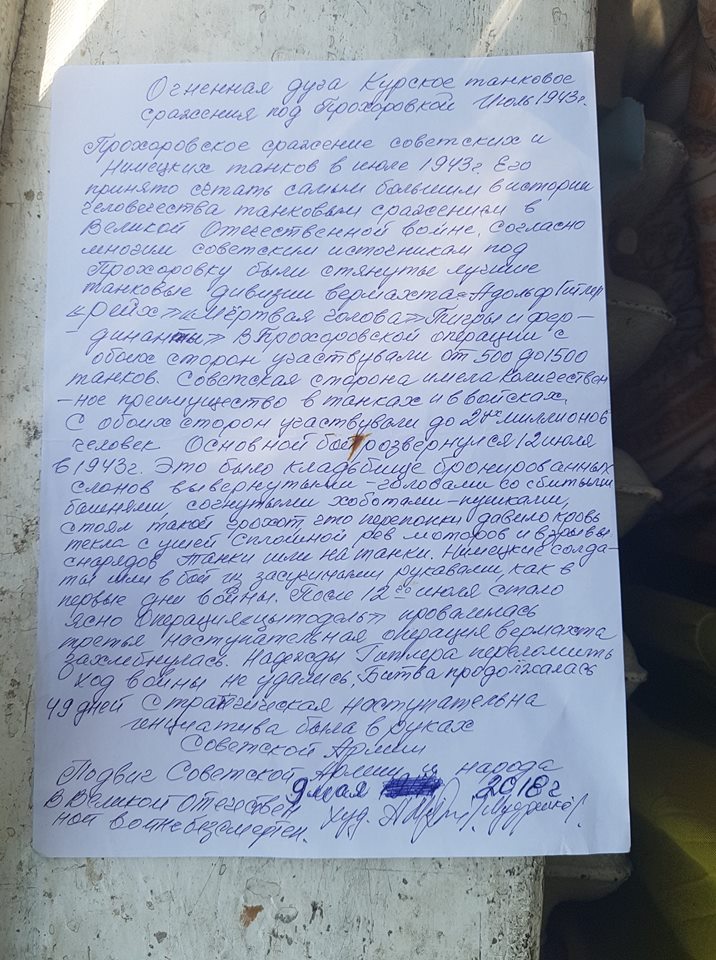 Огненная дуга Курское танковое
сражения под Прохоровкой Июль 1943г.
Прохоровское сражение советских и
Немецких танков в июле 1943г. Его
принято сетать самым большим в истории
человечества танковым сражением в
Великой Отечественной войне. Согласно
многим советским источникам под
Прохоровку были стянуты лучшие
танковые дивизии вермахта «Адольф Гитлер
«Рейх» «Мёртвая голова» Тигры и фер-
-динанты» В Прохоровской операции с
обоих сторон участвували от 500 до 1500
танков. Советская сторона имела количествен
-ное преимущество в танках и в войсках.
С обоих сторон участвували до 2ух миллионов
человек Основной бой розвернулся 12 июля
в 1943г. Это было кладьбище бронированных
слонов вывернутыми - головами со сбитыми
башнями, согнутыми хоботами - пушками,
стоял такой грохот, что перепонки давило кровь
текла с ушей Сплошной рев моторов и взрывы
снарядов Танки шли на танки. Немецкие солда-
ты шли в бой с засучеными рукавами, как в
первые дни войны. После 12го июля стало
ясно Операция «Цытодель» провалилась
третья наступательная операция вермахта
захлебнулась. Надежды Гитлера переломить
ход войны не удались, Битва продолжалась
49 дней Стратгическая наступательна
инициатива была в руках
Советской Армии
Подвиг Советской Армии и народа
В Великой Отечествен 9 мая 2018г
ной войне безсмертен. Худ.